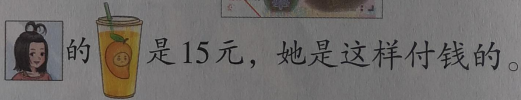 的是15元，她是这样付钱的。